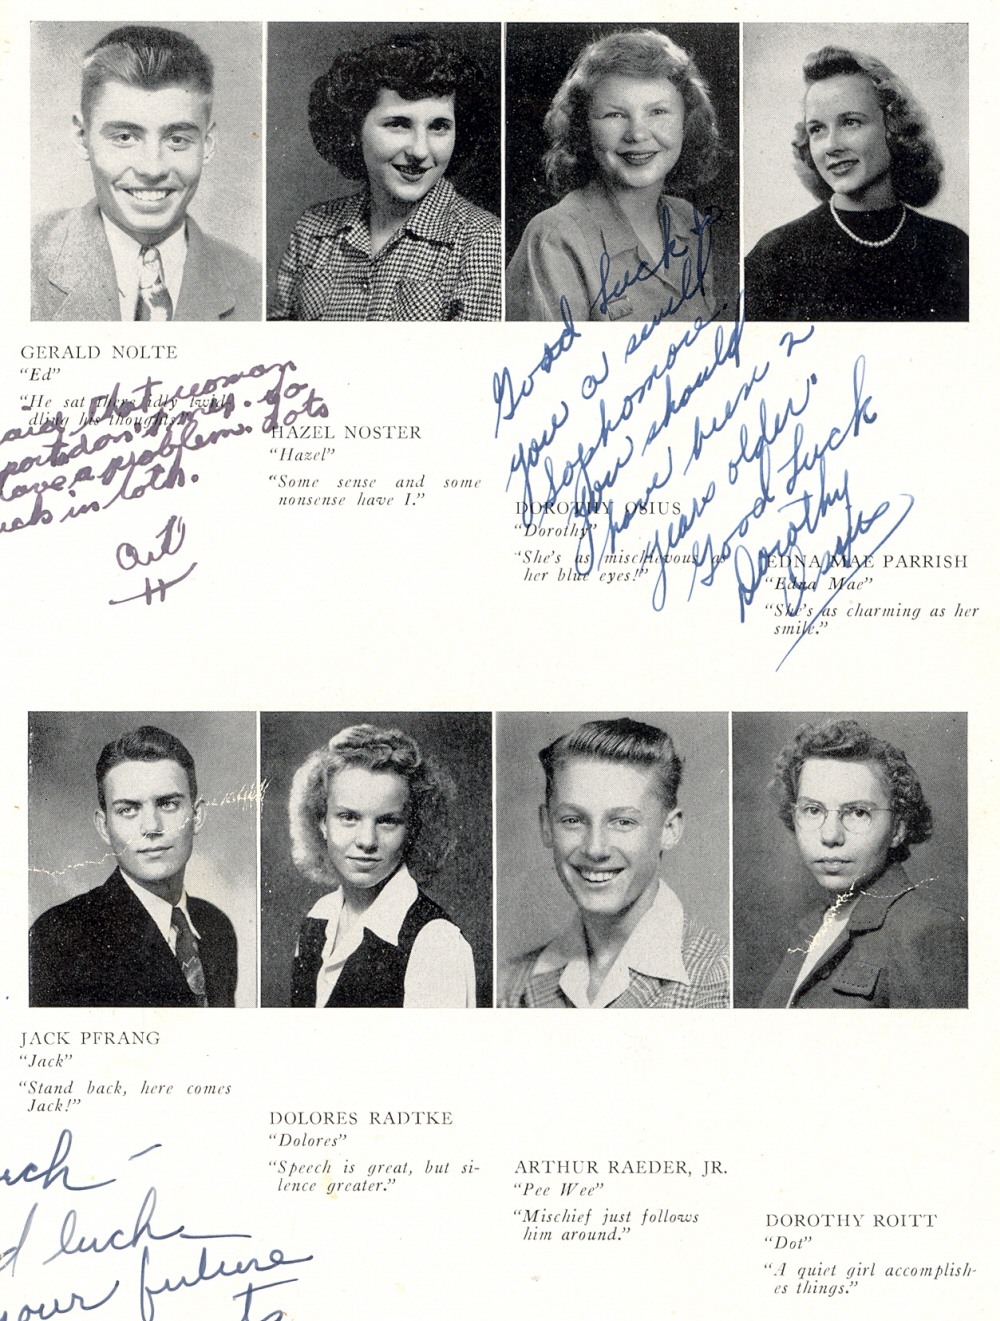 GERALD NOLTE
"Ed"
"He sat there idly twid-
dling his thoughts."
said that woman
go
have a problem. lots
luck in lots.
Art
H
HAZEL NOSTER
"Hazel"
"Some sense and some
nonsense have I."
Good Luck to
you a swell
Sophomore.
You should
have been 2
years older.
Good Luck
Dorothy
Osius
DOROTHY OSIUS
"Dorothy"
"She's as mischievous as
her blue eyes!"
EDNA MAE PARRISH
"Edna Mae"
"She's as charming as her
smile."
JACK PFRANG
"Jack"
"Stand back, here comes
Jack!"
DOLORES RADTKE
"Dolores"
"Speech is great, but si-
lence greater."
ARTHUR RAEDER, JR.
"Pee Wee"
"Mischief just follows
him around."
DOROTHY ROITT
"Dot"
"A quiet girl accomplish-
es things."
luck
your future